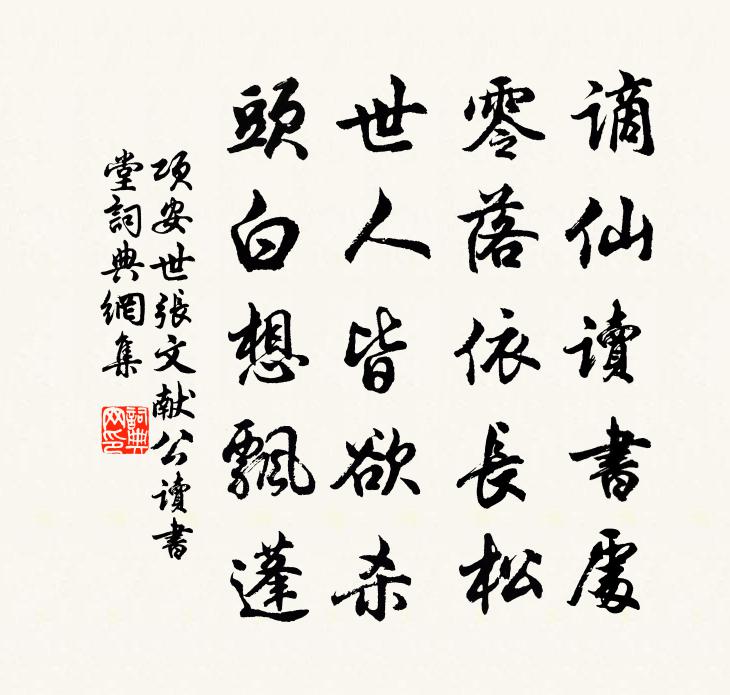 謫仙讀書處
零落依長松
世人皆欲杀
頭白想飄蓬
項安世張文献公讀書
堂詞典網集
詞典
网印